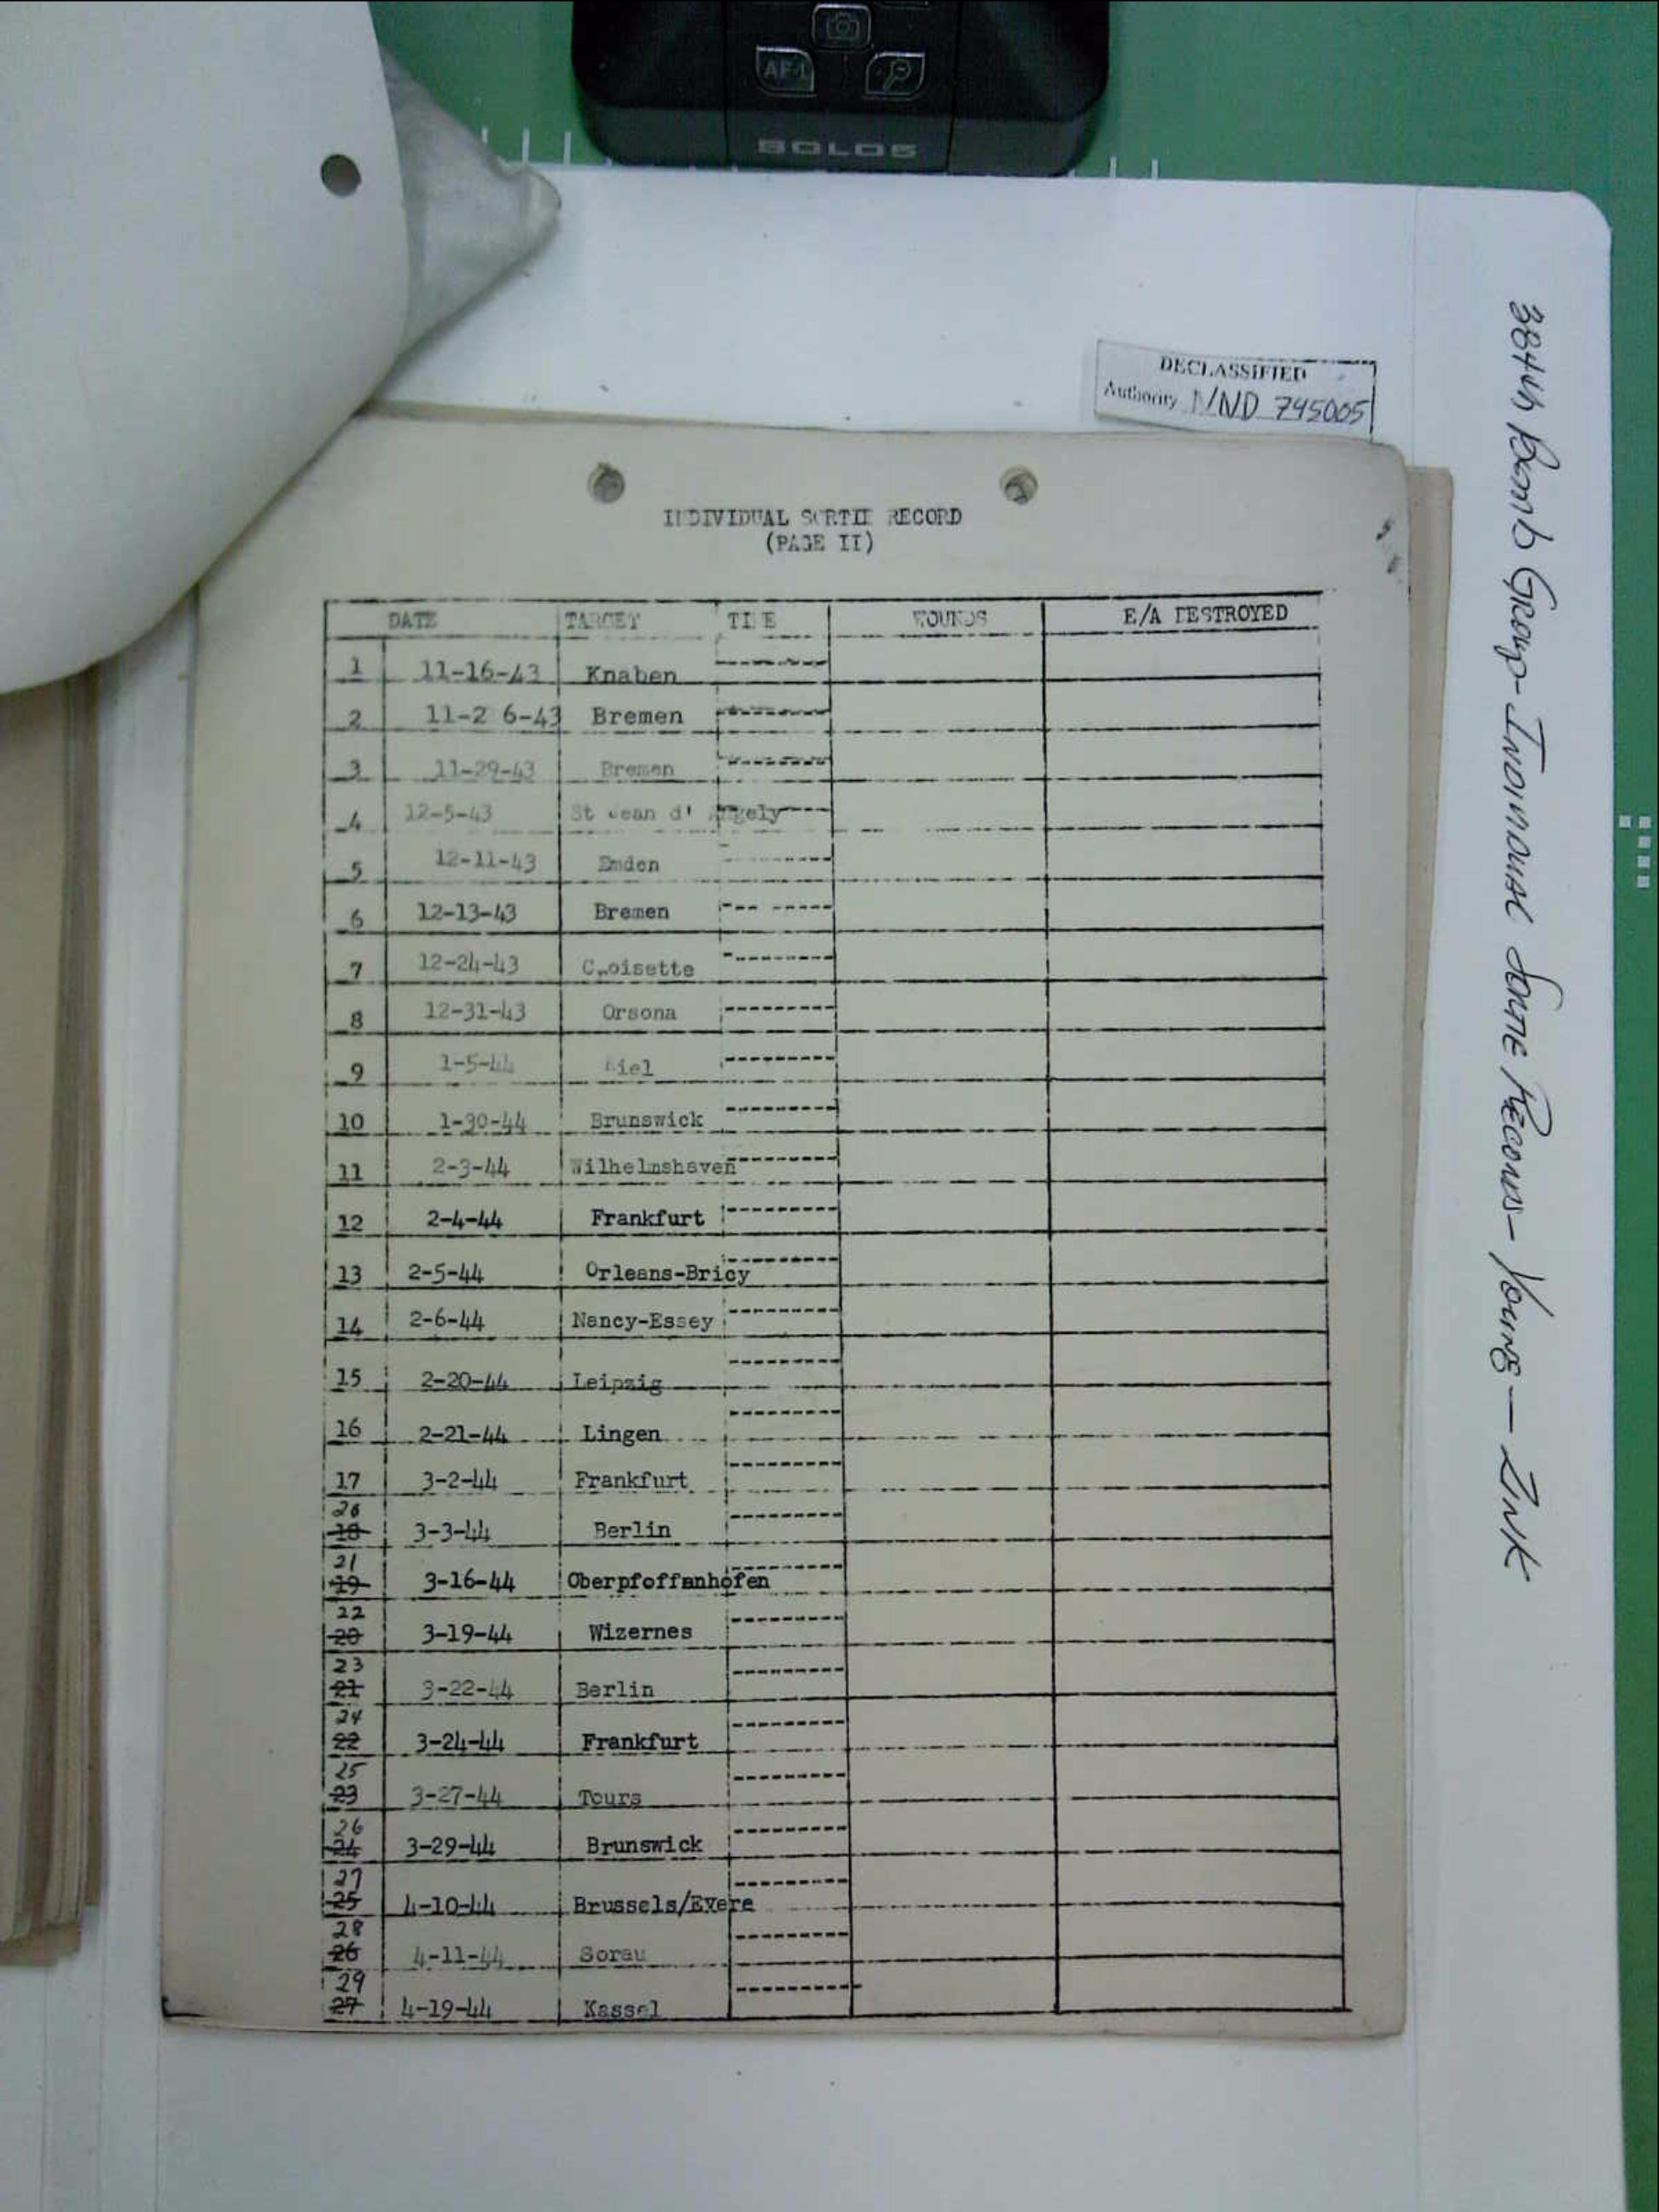 AF-L
BOLOS
DECLASSIFIED
Authority NND 745005
INDIVIDUAL SORTIE RECORD
(PAGE II)
DATE TARGET TIME WOUNDS E/A DESTROYED
1 11-16-43 Knaben
2 11-2 6-43 Bremen
3 11-29-43 Bremen
4 12-5-43 St Jean d' Angely
5 12-11-43 Emden
6 12-13-43 Bremen
7 12-24-43 Croisette
8 12-31-43 Orsona
9 1-5-44 Kiel
10 1-30-44 Brunswick
11 2-3-44 Wilhelmshaven
12 2-4-44 Frankfurt
13 2-5-44 Orleans-Bricy
14 2-6-44 Nancy-Essey
15 2-20-44 Leipzig
16 2-21-44 Lingen
17 3-2-44 Frankfurt
20
18 3-3-44 Berlin
21
19 3-16-44 Oberpfoffanhofen
22
20 3-19-44 Wizernes
23
21 3-22-44 Berlin
24
22 3-24-44 Frankfurt
25
23 3-27-44 Tours
26
24 3-29-44 Brunswick
27
25 4-10-44 Brussels/Evere
28
26 4-11-44 Sorau
29
27 4-19-44 Kassel
384th Bomb Group - Individual Sortie Records - Young - Zink